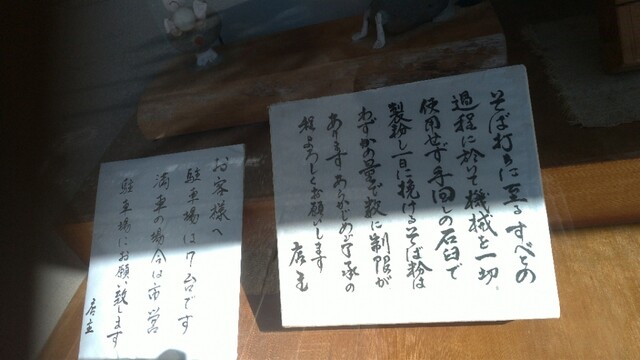 そば打ちに至るすべての
過程に於いて機械を一切、
使用せず手回しの石臼で
製粉し一日に挽けるそば粉は
わずかの量で数に制限が
あります あらかじめご了承の
程よろしくお願いします
店主
お客様へ
駐車場は7台です
満車の場合は市営
駐車場にお願い致します
店主